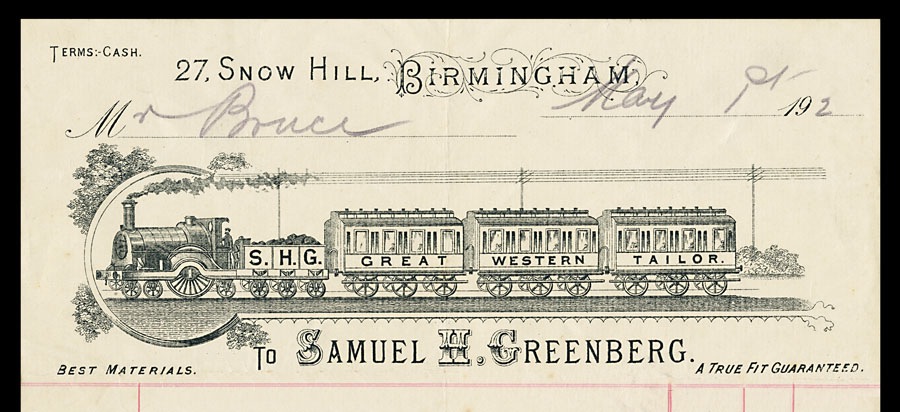 TERMS:-CASH.
27, SNOW HILL, BIRMINGHAM,
May 1st 192
Mr Bruce
S. H. G. GREAT WESTERN TAILOR.
TO SAMUEL H. GREENBERG.
BEST MATERIALS.
A TRUE FIT GUARANTEED.